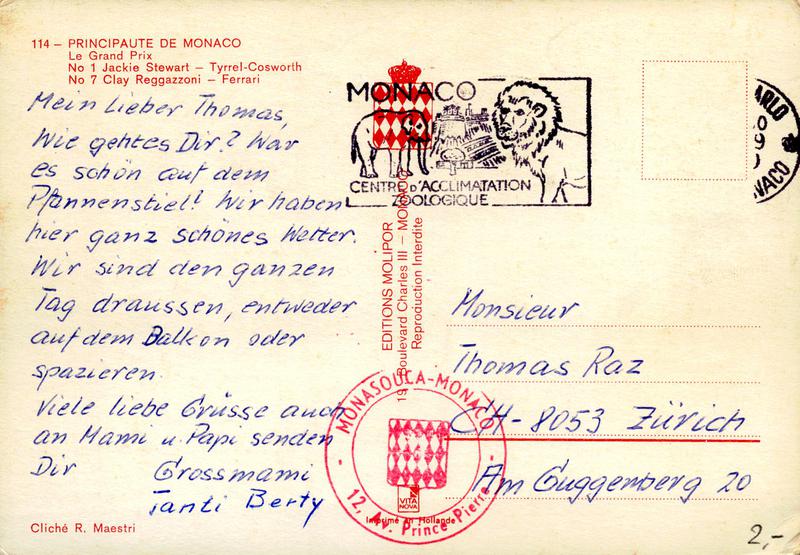 114 – PRINCIPAUTE DE MONACO
Le Grand Prix
No 1 Jackie Stewart – Tyrrel-Cosworth
No 7 Clay Reggazzoni – Ferrari
Mein Lieber Thomas,
Wie geht es Dir? War
es schön auf dem
Pfannenstiel? Wir haben
hier ganz schönes Wetter.
Wir sind den ganzen
Tag draussen, entweder
auf dem Balkon oder
spazieren.
Viele liebe Grüsse auch
an Mami u. Papi senden
Dir Grossmami
Tanti Berty
Cliché R. Maestri
MONACO
CENTRE D'ACCLIMATATION
ZOOLOGIQUE
EDITIONS MOLIPOR
19 Boulevard Charles III – MONACO
Reproduction Interdite
MONASOUCA-MONACO
12, Av. Prince Pierre
VITA
NOVA
Imprimé en Hollande
MONACO
Monsieur
Thomas Raz
CH-8053 Zürich
Am Guggenberg 20
2,-